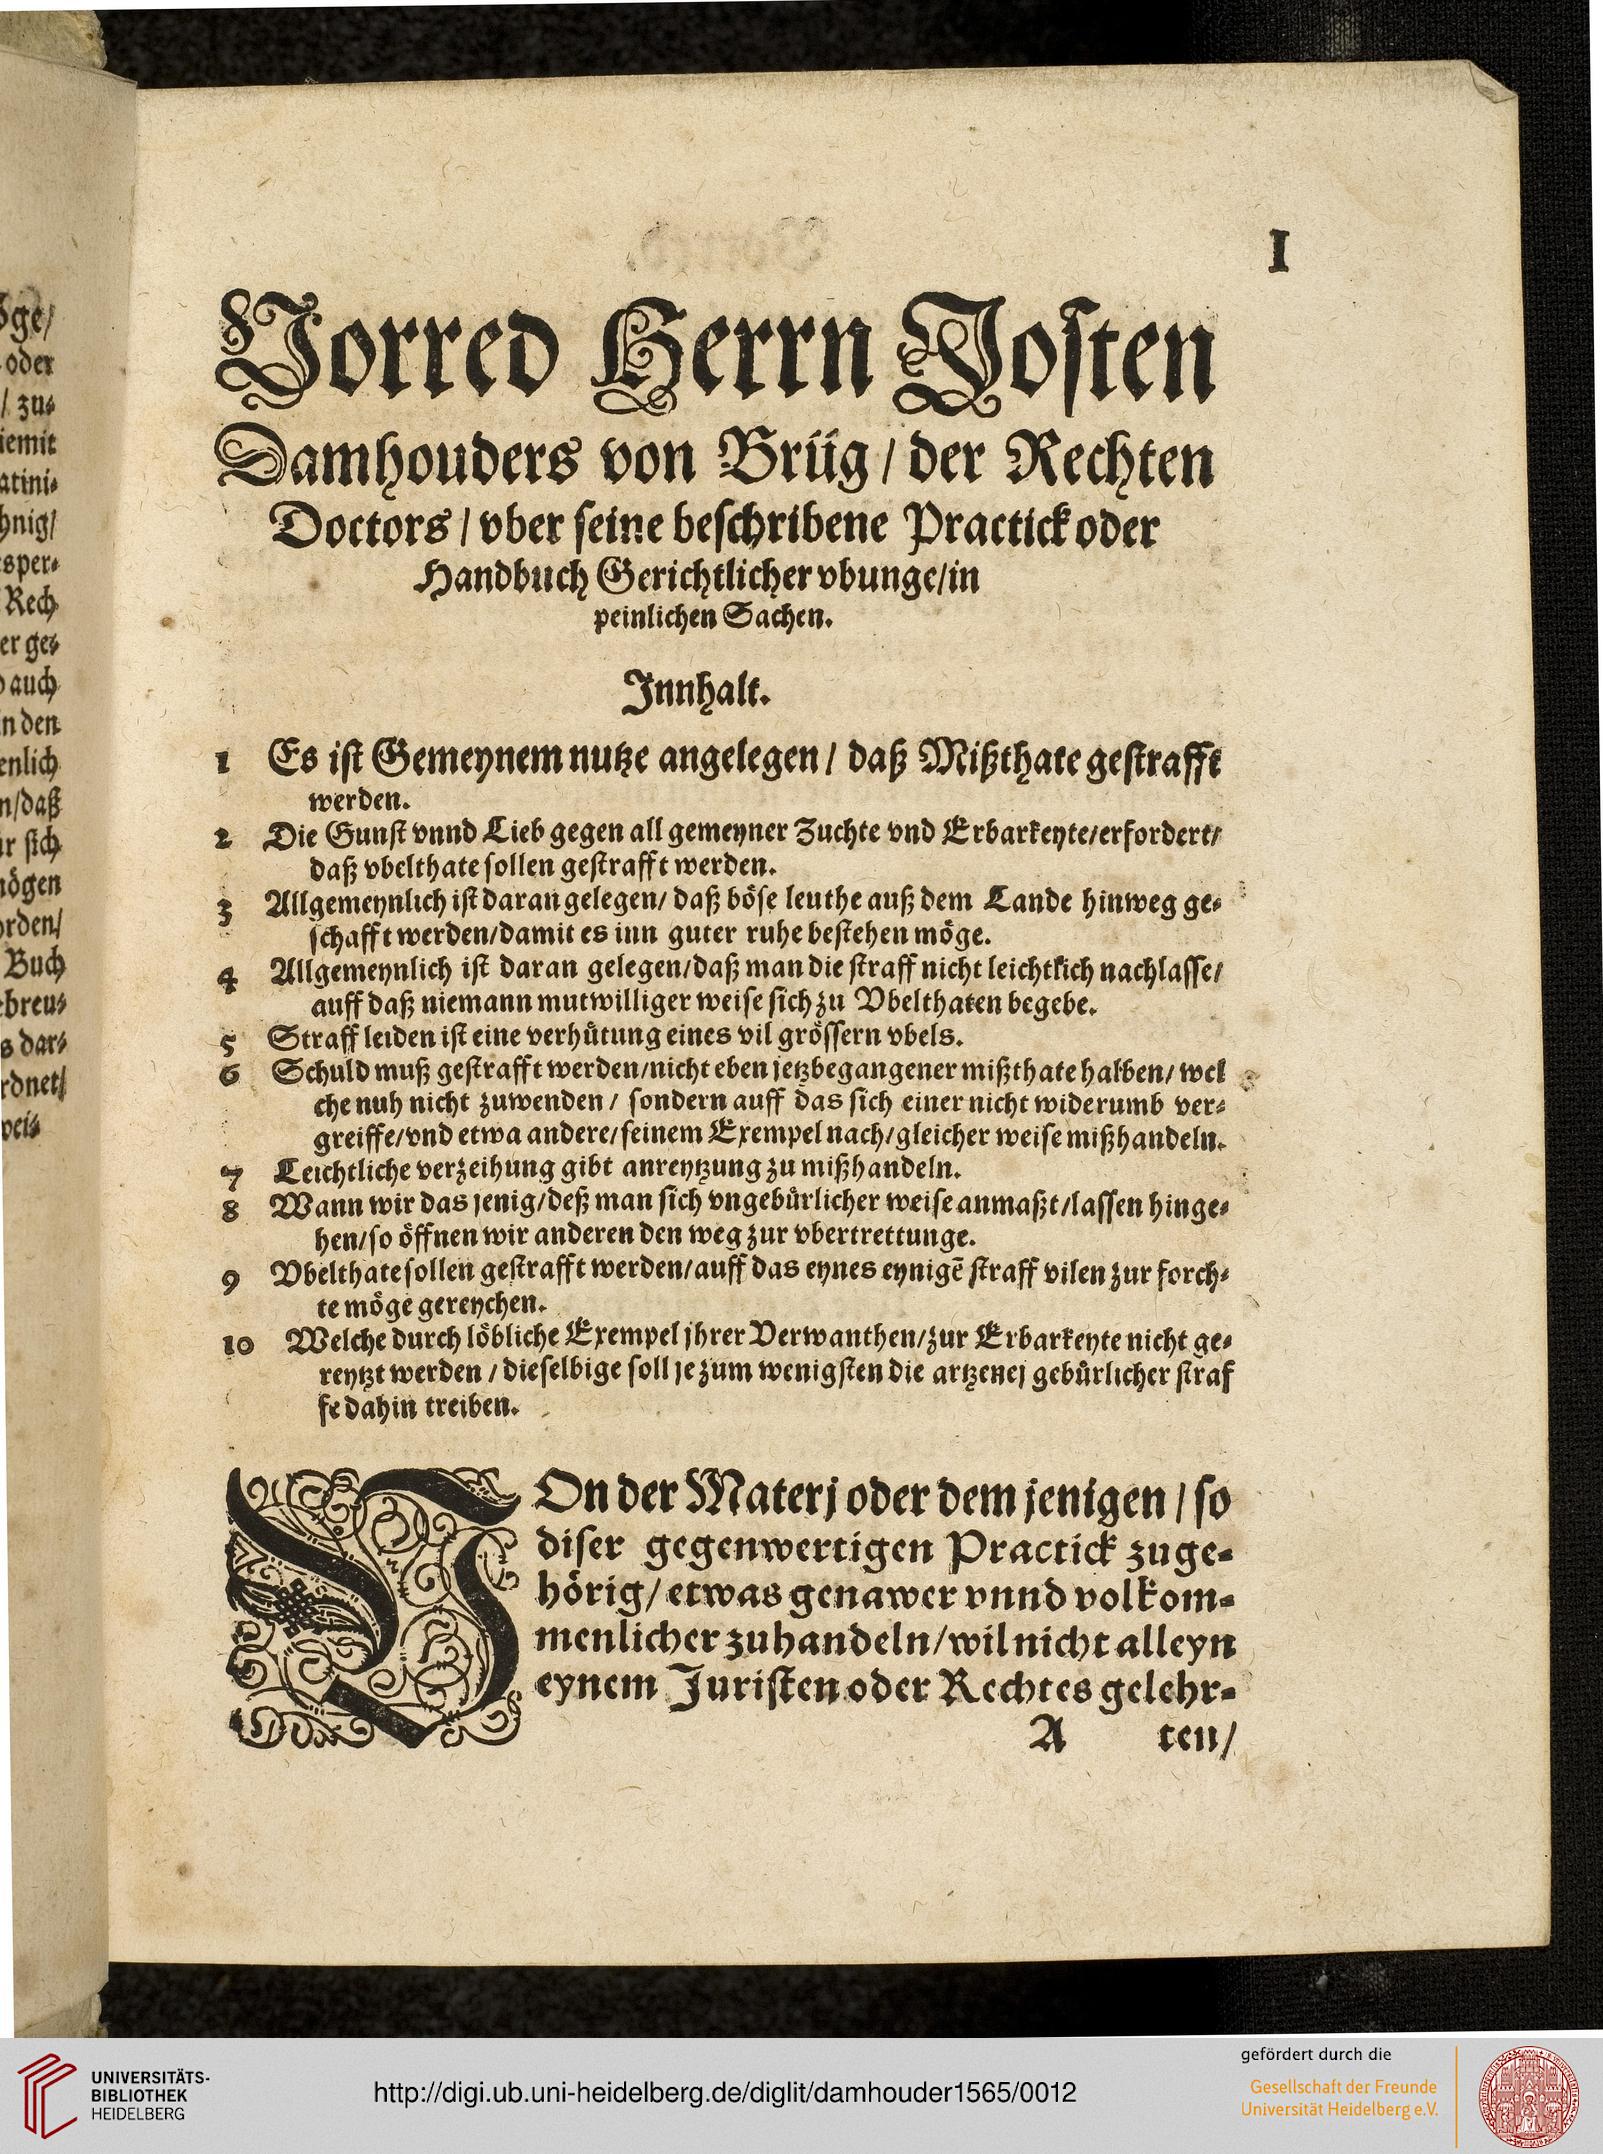 I
Vorred Herrn Josten
Damhouders von Brüg / der Rechten
Doctors / vber seine beschribene Practick oder
Handbuch Gerichtlicher vbunge/in
peinlichen Sachen.
Innhalt.
1 Es ist Gemeynem nutze angelegen / daß Mißthate gestrafft
werden.
2 Die Gunst vnnd Lieb gegen all gemeyner Zuchte vnd Erbarkeyte/erfordert/
daß vbelthate sollen gestrafft werden.
3 Allgemeynlich ist daran gelegen/ daß böse leuthe auß dem Lande hinweg ge-
schafft werden/damit es inn guter ruhe bestehen möge.
4 Allgemeynlich ist daran gelegen/daß man die straff nicht leichtlich nachlasse/
auff daß niemann mutwilliger weise sich zu Vbelthaten begebe.
5 Straff leiden ist eine verhütung eines vil grössern vbels.
6 Schuld muß gestrafft werden/nicht eben jetzbegangener mißthate halben/ wel
che nuh nicht zuwenden / sondern auff das sich einer nicht widerumb ver-
greiffe/vnd etwa andere/seinem Exempel nach/gleicher weise mißhandeln.
7 Leichtliche verzeihung gibt anreytzung zu mißhandeln.
8 Wann wir das jenig/deß man sich vngebürlicher weise anmaßt/lassen hinge-
hen/so öffnen wir anderen den weg zur vbertrettunge.
9 Vbelthate sollen gestrafft werden/auff das eynes eynigē straff vilen zur forch-
te möge gereychen.
10 Welche durch löbliche Exempel jhrer Verwanthen/zur Erbarkeyte nicht ge-
reytzt werden / dieselbige soll je zum wenigsten die artzenej gebürlicher straf
fe dahin treiben.
VOn der Materj oder dem jenigen / so
diser gegenwertigen Practick zuge-
hörig/ etwas genawer vnnd volkom-
menlicher zuhandeln/wil nicht alleyn
eynem Juristen oder Rechtes gelehr-
A ten/
öge/
oder
/ zu-
iemit
atini-
hnig/
sper-
Rech
er ge-
auch
n den
enlich
n/daß
r sich
mögen
rden/
Buch
ebreu-
s dar-
rdnet/
wel-
UNIVERSITÄTS-
BIBLIOTHEK
HEIDELBERG
http://digi.ub.uni-heidelberg.de/diglit/damhouder1565/0012
gefördert durch die
Gesellschaft der Freunde
Universität Heidelberg e.V.